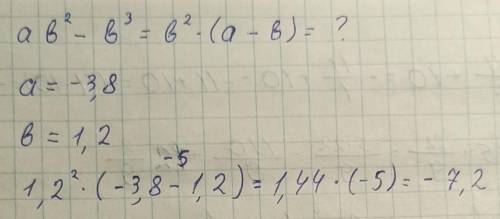 ав² - в³ = в² · (а - в) = ?
а = -3,8
в = 1,2
-5
1,2² · (-3,8 - 1,2) = 1,44 · (-5) = -7,2